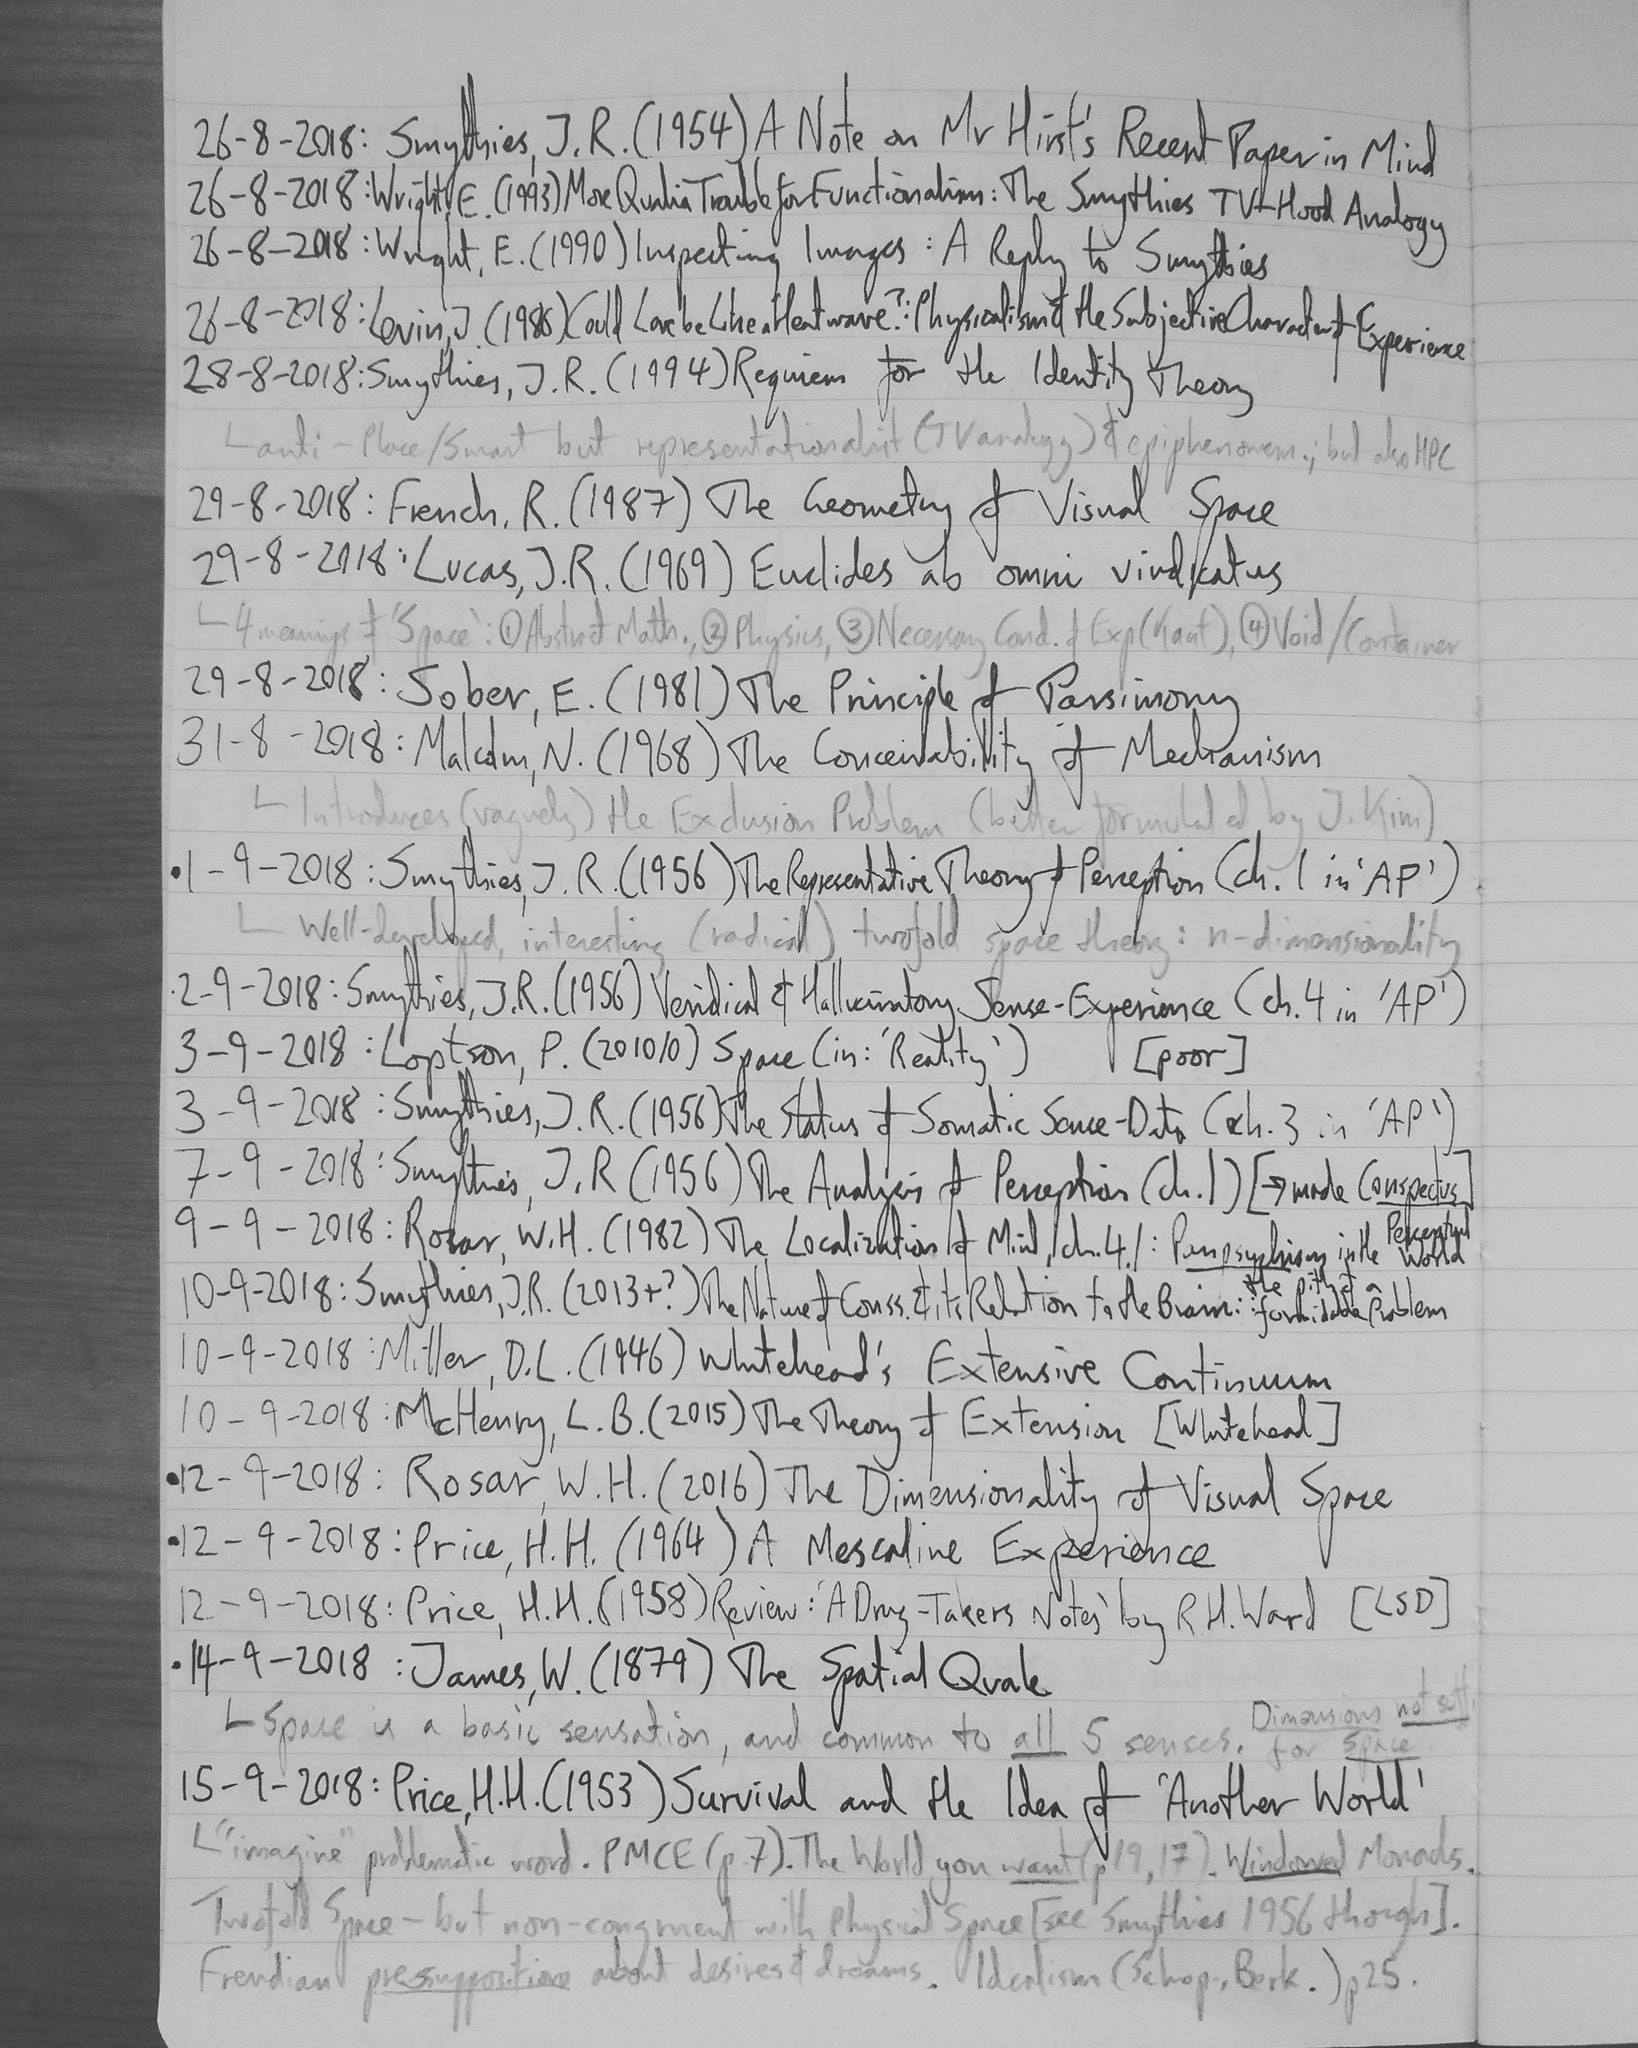 26-8-2018: Smythies, J.R. (1954) A Note on Mr Hirst's Recent Paper in Mind
26-8-2018: Wright, E. (1993) More Qualia Trouble for Functionalism: The Smythies TV-Hood Analogy
26-8-2018: Wright, E. (1990) Inspecting Images: A Reply to Smythies
26-8-2018: Levin, J. (1986) Could Love be Like a Heatwave?: Physicalism & the Subjective Character of Experience
28-8-2018: Smythies, J.R. (1994) Requiem for the Identity Theory
└ anti-Place/Smart but representationalist (TV analogy) & epiphenomen.; but also HPC
29-8-2018: French, R. (1987) The Geometry of Visual Space
29-8-2018: Lucas, J.R. (1969) Euclides ab omni vindicatus
└ 4 meanings of 'Space': ① Abstract Math., ② Physics, ③ Necessary Cond. of Exp (Kant), ④ Void/Container
29-8-2018: Sober, E. (1981) The Principle of Parsimony
31-8-2018: Malcolm, N. (1968) The Conceivability of Mechanism
└ Introduces (vaguely) the Exclusion Problem (better formulated by J. Kim)
•1-9-2018: Smythies, J.R. (1956) The Representative Theory of Perception (ch. 1 in 'AP')
└ Well-developed, interesting (radical) twofold space theory: n-dimensionality
·2-9-2018: Smythies, J.R. (1956) Veridical & Hallucinatory Sense-Experience (ch. 4 in 'AP')
3-9-2018: Loptson, P. (2010/0) Space (in: 'Reality') [poor]
3-9-2018: Smythies, J.R. (1956) The Status of Somatic Sense-Data (ch. 3 in 'AP')
7-9-2018: Smythies, J.R (1956) The Analysis of Perception (ch. 1) [→ made Conspectus]
9-9-2018: Rosar, W.H. (1982) The Localization of Mind, /ch. 4./: Panpsychism in the Perceptual World
10-9-2018: Smythies, J.R. (2013+?) The Nature of Conss. & its Relation to the Brain: the pith of a formidable Problem
10-9-2018: Miller, D.L. (1946) Whitehead's Extensive Continuum
10-9-2018: McHenry, L.B. (2015) The Theory of Extension [Whitehead]
•12-9-2018: Rosar, W.H. (2016) The Dimensionality of Visual Space
•12-9-2018: Price, H.H. (1964) A Mescaline Experience
12-9-2018: Price, H.H. (1958) Review: 'A Drug-Takers Notes' by R.H. Ward [LSD]
•14-9-2018: James, W. (1879) The Spatial Quale
└ Space is a basic sensation, and common to all 5 senses. Dimensions not suff. for Space
15-9-2018: Price, H.H. (1953) Survival and the Idea of 'Another World'
└ "imagine" problematic word. PMCE (p.7). The World you want (p 19, 17). Windowed Monads.
Twofold Space – but non-congruent with Physical Space [see Smythies 1956 though].
Freudian presupposition about desires & dreams. Idealism (Schop., Berk.) p25.